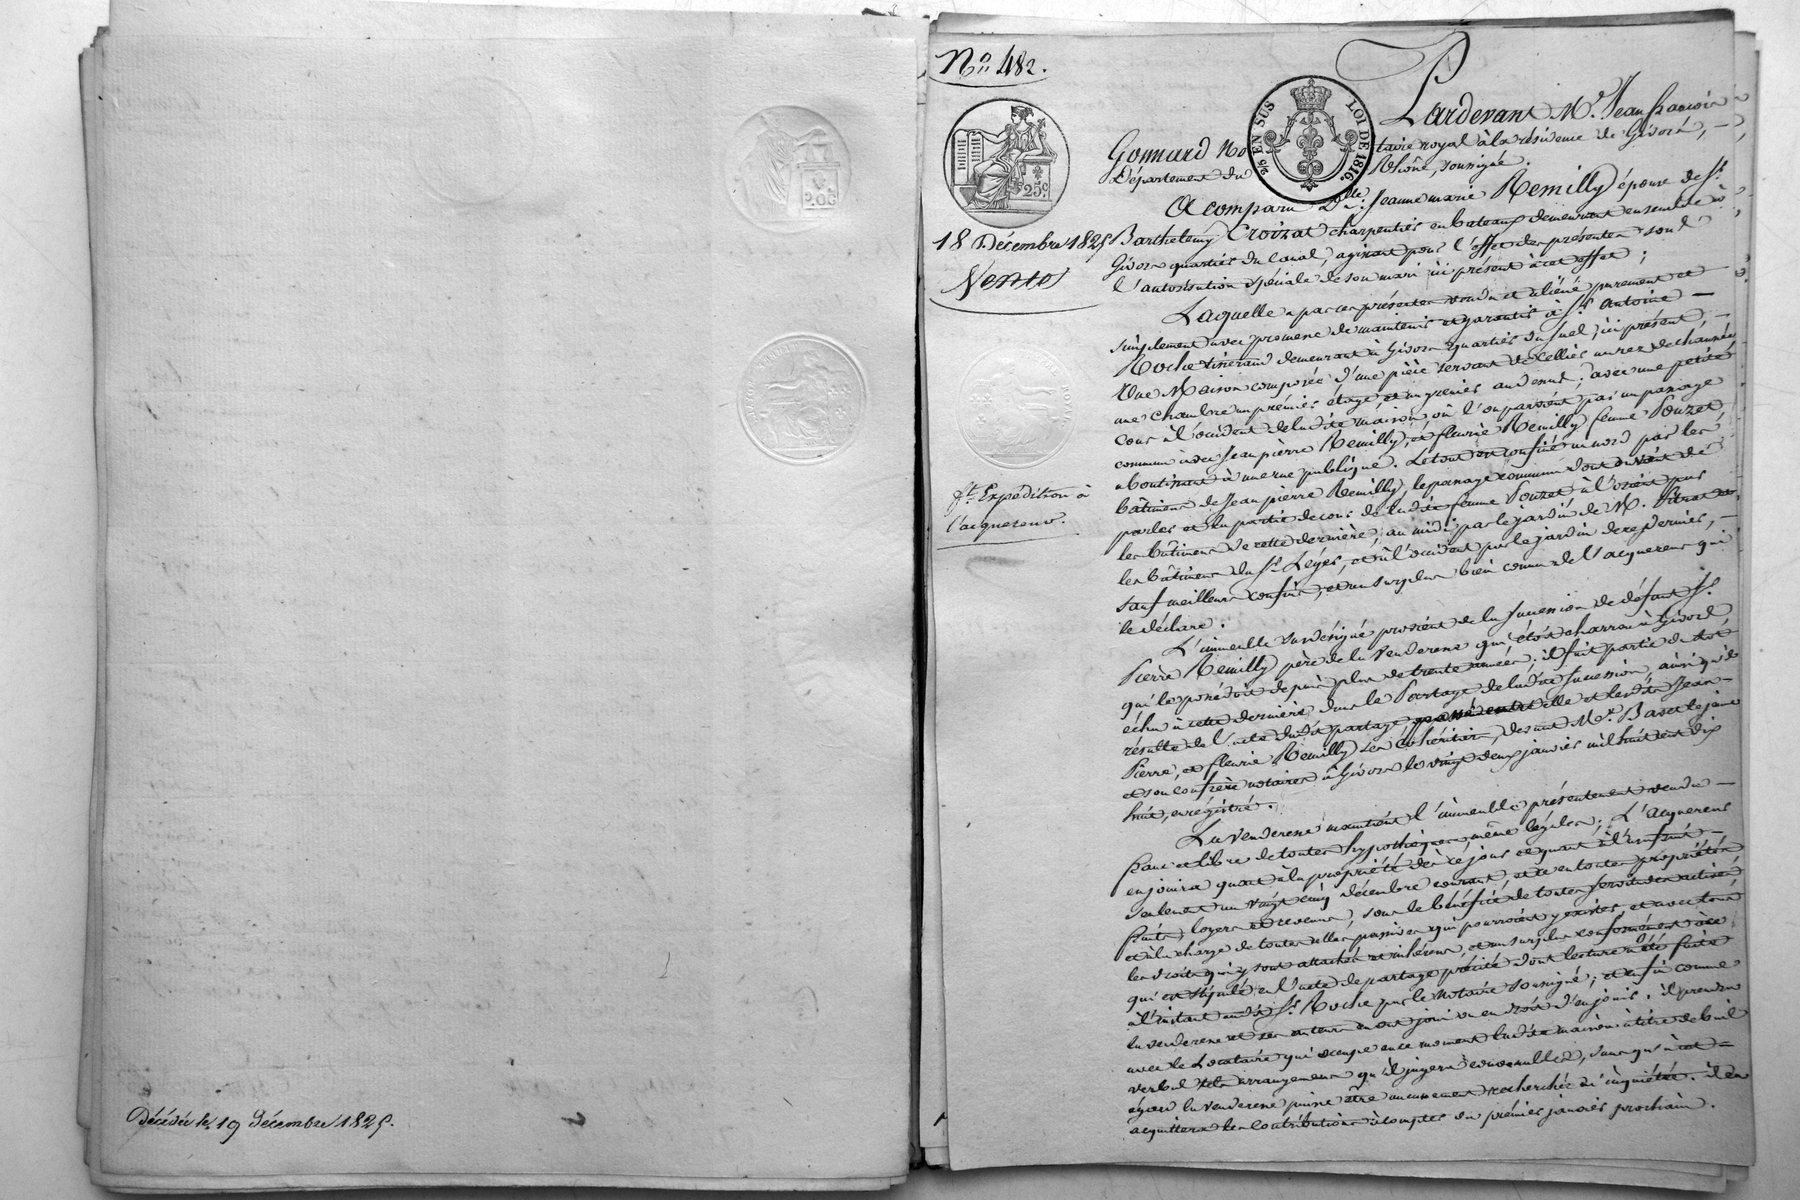 Décédée le 19 Décembre 1825.
Nº 482.
25 c
2/5 EN SUS LOI DE 1816.
18 Décembre 1825
Vente
ft. Expédition à
l'acquereur.
Pardevant Me. Jean françois
Gonnard notaire royal à la résidence de Givors,
Département du Rhône, soussigné.
A comparu Dlle. Jeanne marie Remilly épouse de Sr.
Barthelemy Croizat charpentier en bateaux demeurant ensemble à
Givors quartier du Canal, agissant pour l'effet des présentes sous
l'autorisation spéciale de son mari ici présent à cet effet;
Laquelle a par ces présentes vendu et aliéné purement et
simplement avec promesse de maintenir et garantir à Sr. Antoine
Roche tisserand demeurant à Givors quartier du Suel, ici présent,
Une Maison composée d'une pièce servant de cellier au rez de chaussée
une chambre au premier étage, et un grenier au dessus; avec une petite
cour à l'occident de ladite maison, où l'on parvient par un passage
commun avec Jean pierre Remilly, et fleurie Remilly femme Pouzet,
aboutissant à une rue publique. Le tout est confiné au nord par les
bâtimens de Jean pierre Remilly, le passage commun dont on vient de
parler et la partie de cour de ladite femme Pouzet à l'orient par
les bâtimens de cette dernière, au midi par le jardin de M.
les bâtimens du Sr. Léger, et à l'occident par le jardin de ce dernier,
sauf meilleurs confins, et au surplus bien connu de l'acquereur qui
le déclare.
L'immeuble susdésigné provient de la succession de défunt Sr.
Pierre Remilly père de la Venderesse qui étoit charron à Givors
qui le possédoit depuis plus de trente années; il fait partie du lot
échu à cette dernière dans le Partage de ladite succession, ainsi qu'il
résulte de l'acte dudit partage passé entre elle et lesdits Jean
Pierre, et fleurie Remilly ses Cohéritiers, devant Me. Basset le jeune
et son confrère notaires à Givors le vingt deux janvier mil huit cent dix
huit, enregistré.
La Venderesse maintient l'immeuble présentement vendu
franc et libre de toutes hypothèques, même légales; L'Acquereur
en jouira quant à la propriété dès ce jour et quant à l'usufruit
seulement au vingt cinq décembre courant, et ce en toutes propriétés
fruits, loyers et revenus, sous le bénéfice de toutes servitudes actives
et à la charge de toutes celles passives qui pourroient y exister, et avec tous
les droits qui y sont attachés et inhérens, et au surplus conformément à ce
qui est stipulé en l'acte de partage précité dont lecture a été faite
à l'instant audit Sr. Roche par le Notaire soussigné; et enfin comme
la venderesse et ses auteurs en ont joui ou eu droit d'en jouir. il prendra
avec le Locataire qui occupe en ce moment ladite maison à titre de bail
verbal tels arrangemens qu'il jugera convenables, sans qu'à cet
égard la venderesse puisse être aucunement recherchée ni inquiétée. il en
acquittera les Contributions à compter du premier janvier prochain.